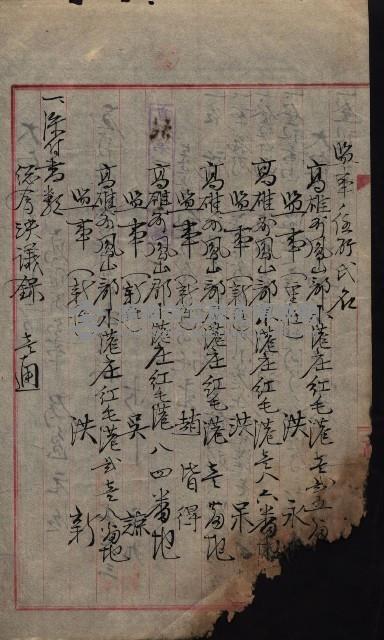 監事住所氏名
高雄州鳳山郡小港庄紅毛港壱弐五番
監事(重任) 洪 永
高雄州鳳山郡小港庄紅毛港壱八六番地
監事(新任) 洪 呆
高雄州鳳山郡小港庄紅毛港壱番地
監事(新任) 趙 皆 得
高雄州鳳山郡小港庄紅毛港八四番地
監事(新任) 吳 諒
高雄州鳳山郡小港庄紅毛港弐壱八番地
監事(新任) 洪 新
一、添付書類
總會決議錄 壱通